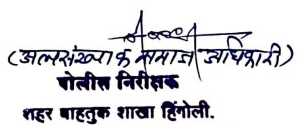 (अल्पसंख्याक समाज अधिकारी)
पोलीस निरीक्षक
शहर वाहतुक शाखा हिंगोली.